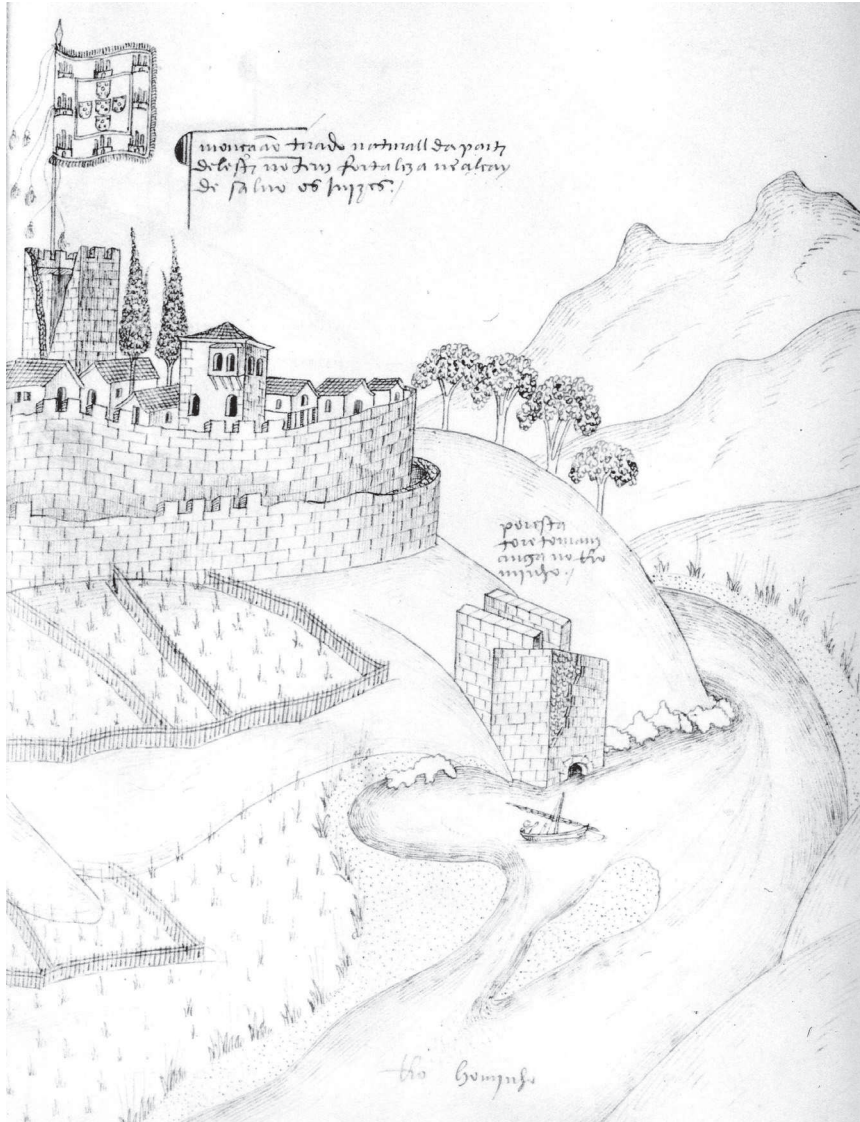 monçaão tirado naturall da parte
deleste não tem fortaleza ne alcay
de saluo os juizes /
por esta
tore tomam
augoa no Rio
minho /
Rio homynho